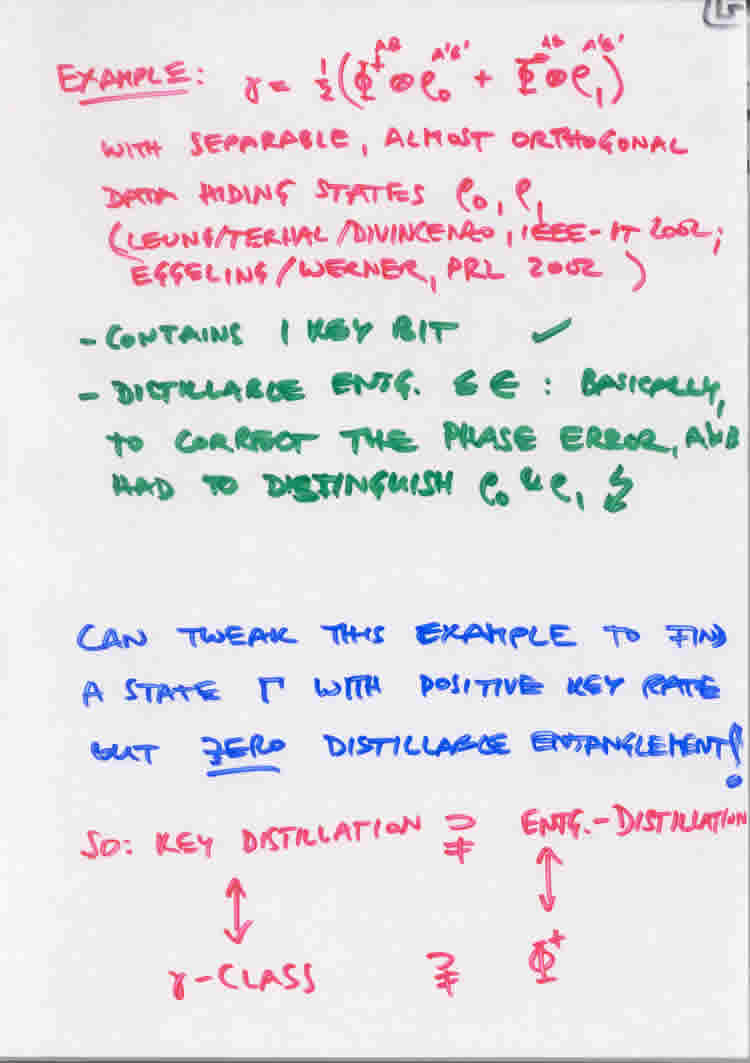 EXAMPLE: γ = 1/2 (Φ⁺^AB ⊗ ρ₀^A'B' + Φ⁻^AB ⊗ ρ₁^A'B')
WITH SEPARABLE, ALMOST ORTHOGONAL
DATA HIDING STATES ρ₀, ρ₁
(LEUNG/TERHAL/DIVINCENZO, IEEE-IT 2002;
EGGELING/WERNER, PRL 2002)
- CONTAINS 1 KEY BIT ✓
- DISTILLABLE ENTG. ≤ ϵ : BASICALLY,
TO CORRECT THE PHASE ERROR, A&B
HAD TO DISTINGUISH ρ₀ & ρ₁ ↯
CAN TWEAK THIS EXAMPLE TO FIND
A STATE Γ WITH POSITIVE KEY RATE
BUT ZERO DISTILLABLE ENTANGLEMENT!
SO: KEY DISTILLATION ⊋ ENTG.-DISTILLATION
↕ ↕
γ-CLASS ⊋ Φ⁺